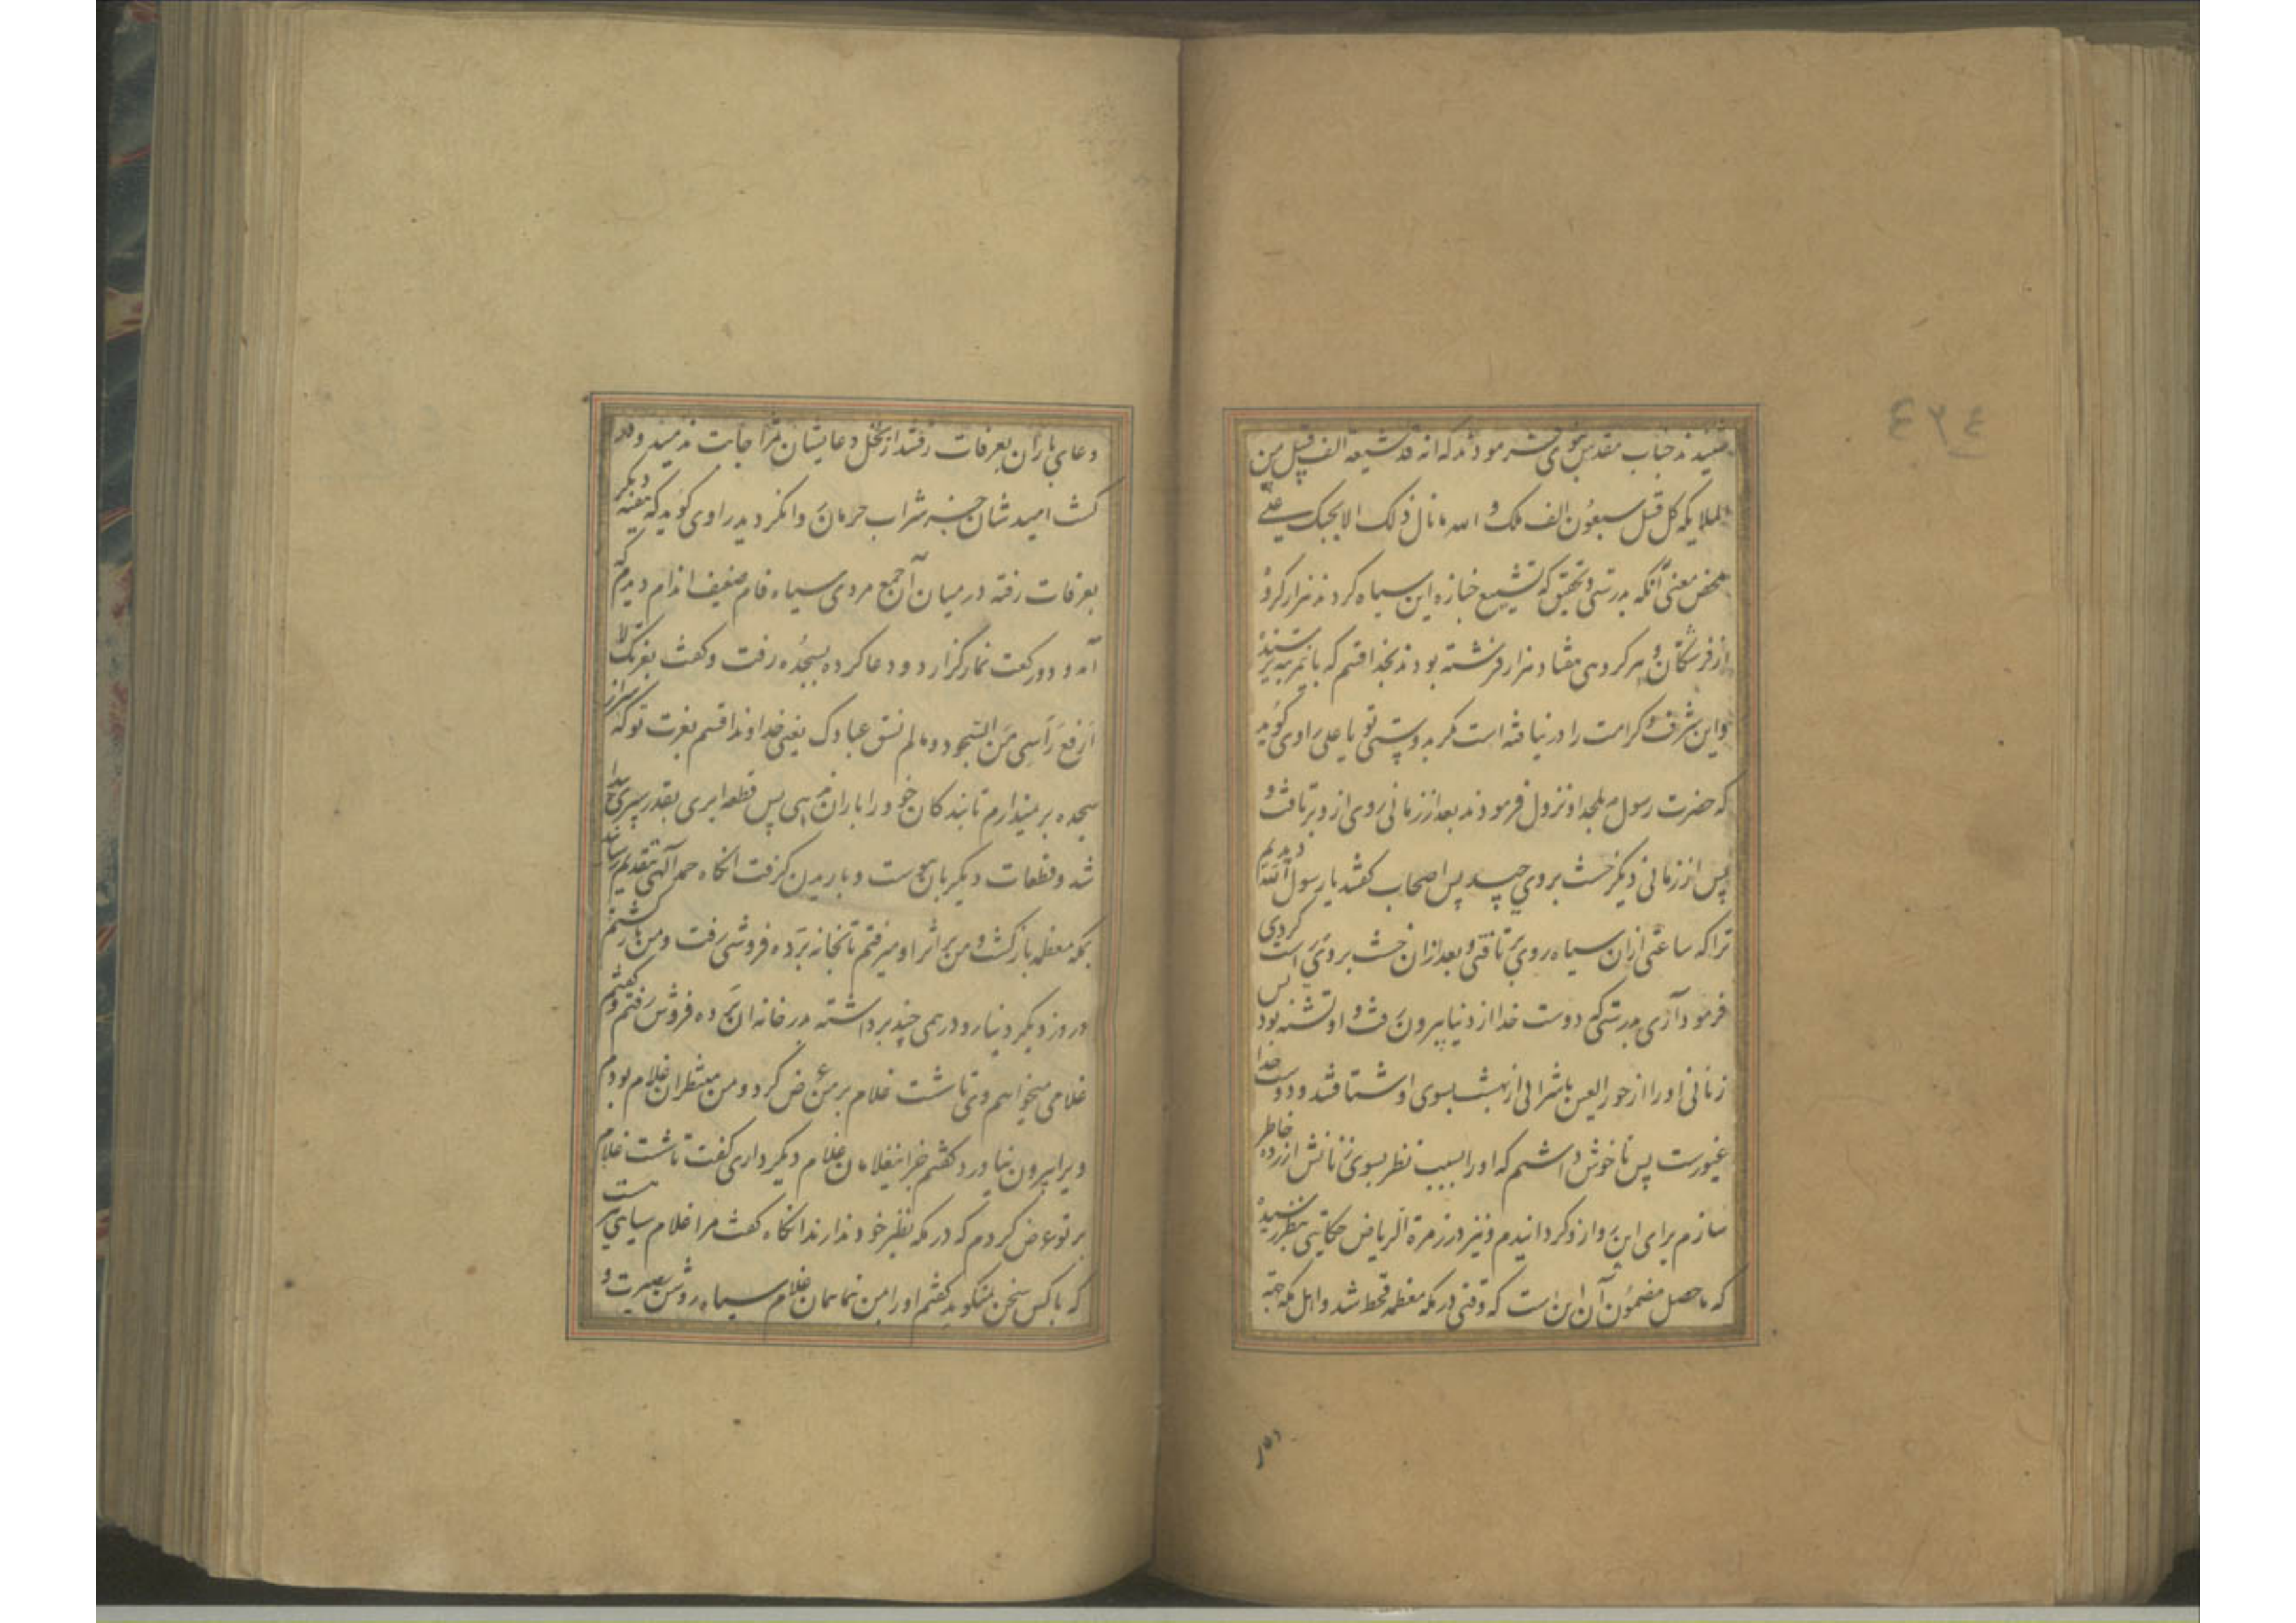 شنیدند جناب مقدس نبوی فرمودند که انه قد شیعه الف قبیل من
الملایکه کل قبیل سبعون الف ملک و الله ما نال ذلک الا بحبک یا علی
محض معنی آنکه بدرستی و تحقیق که تشییع جنازه این سیاه کردند هزار کروه
از فرشتگان و هر کروهی هفتاد هزار فرشته بودند بخدا قسم که باین مرتبه نرسید
و این شرف و کرامت را در نیافته است مکر بدوستی تو یا علی راوی کوید
که حضرت رسول بلحد او نزول فرمودند بعد از زمانی روی از و برتافت و
پس از زمانی دیکر خشت بروی چید پس اصحاب کفتند یا رسول الله دیدیم
ترا که ساعتی ازان سیاه روی برتافتی و بعد ازان خشت بروی راست کردی
فرمود آری بدرستی که دوست خدا از دنیا بیرون رفت و او تشنه بود پس
زنانی او را از حور العین با شرابی از بهشت بسوی او شتافتند و دوست خدا
غیورست پس ناخوش داشتم که او را بسبب نظر بسوی زنانش ازرده خاطر
سازم برای این رو ازو کردانیدم و نیز در زمرة الریاض حکایتی بنظر رسید
که ماحصل مضمون آن این است که وقتی در مکه معظمه قحط شد و اهل مکه جهة
دعای باران بعرفات رفتند دعا ایشان را اجابت نرسید و در
کشت امید شان جز شراب حرمان وا نکردید راوی کوید که هفته دیکر
بعرفات رفته در میان آن جمع مردی سیاه فام ضعیف اندام دیدم که
آمد و دو رکعت نماز کزارد و دعا کرده بسجده رفت و کفت بعزتک لا
ارفع رأسی من السجود و ما لم تسق عبادک یعنی خداوندا قسم بعزت تو که سر از
سجده بر نمیدارم تا بندکان خود را باران ندهی پس قطعه ابری بقدر سپری پیدا
شد و قطعات دیکر بان پیوست و باریدن کرفت انکاه حمد آلهی بتقدیم رسانید
بمکه معظمه بازکشت و من بر اثر او میرفتم تا بخانه برده فروشی رفت و من بازکشتم
در روز دیکر دینار و درهمی چند برداشته بدر خانه ان برده فروش رفتم و کفتم
غلامی میخواهم وی تا شست غلام بر من عرض کرد و من منتظر ان غلام بودم
ویرا بیرون نیاورد کفتم جز اینغلامان غلام دیکر داری کفت تا شست غلام
بر تو عرض کردم که در مکه نظیر خود ندارند انکاه کفت مرا غلام سیاهی هست
که با کس سخن نمیکوید کفتم او را بمن نما همان غلام سیاه روشن بصیرت و